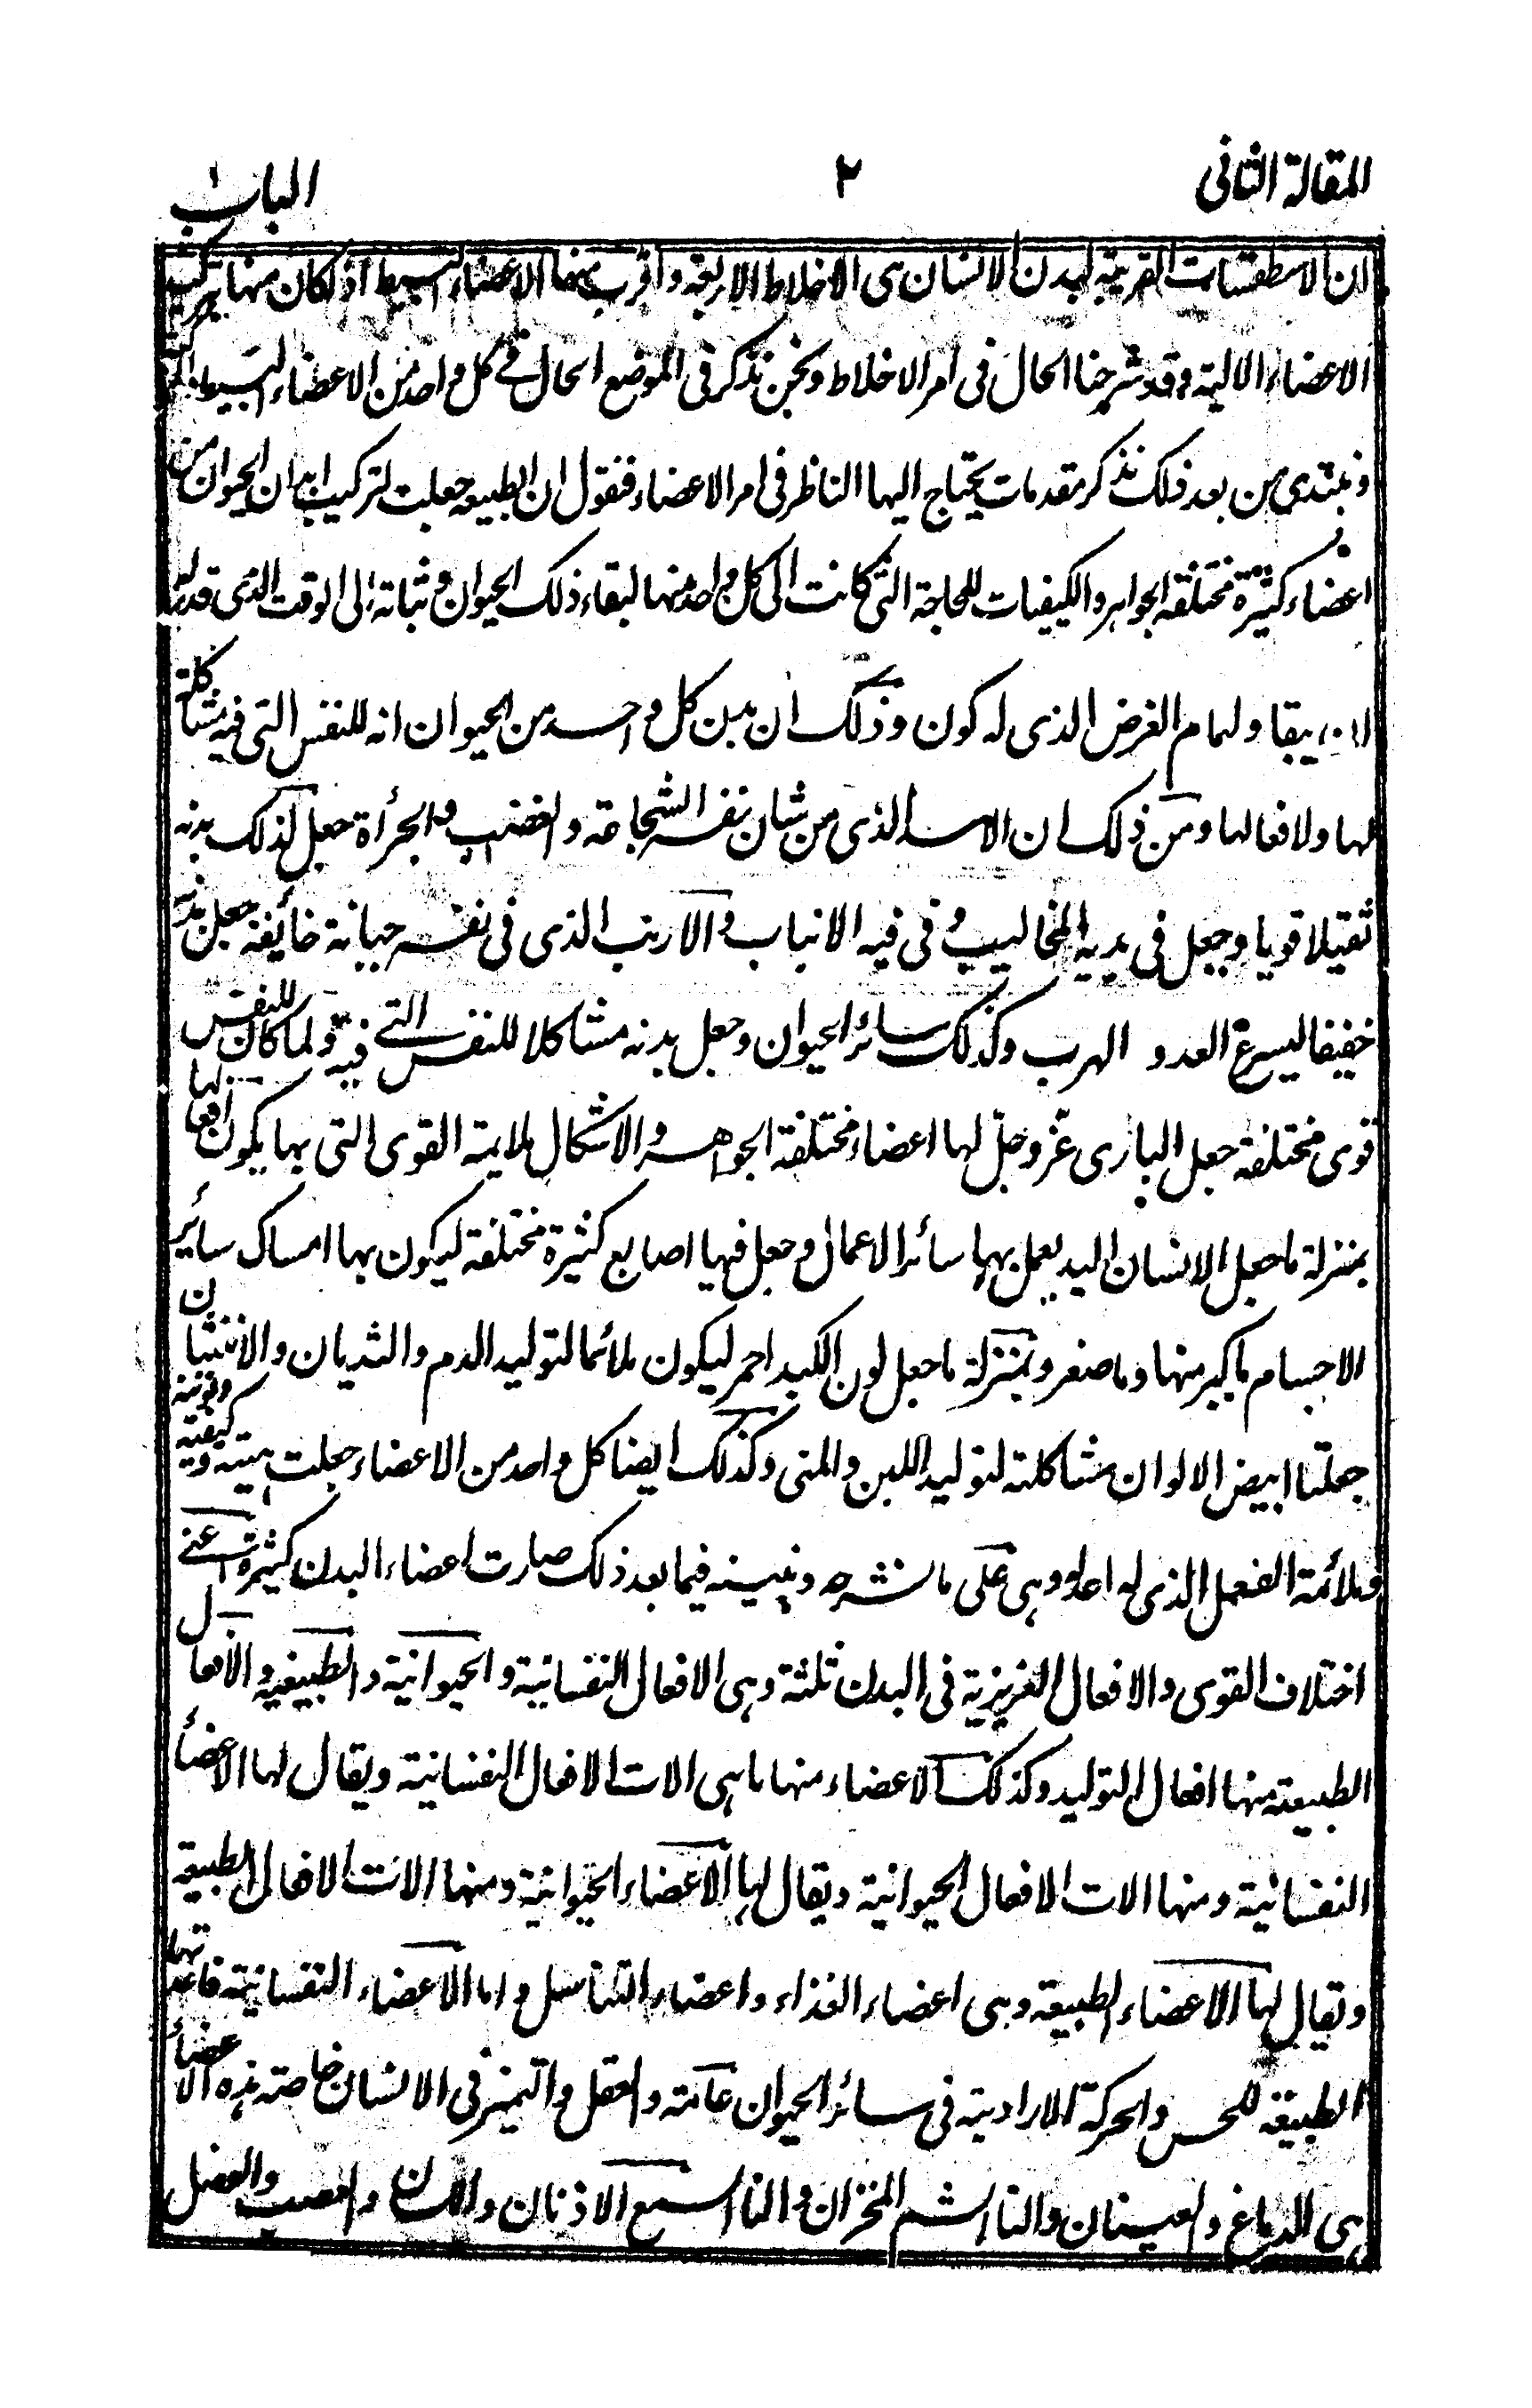 المقالة الثانى ٢ الباب ١
ان الاسطقسات القريبة لبدن الانسان هى الاخلاط الاربعة واقرب منها الاعضاء البسيط اذ كان منها تركيب
الاعضاء الالية وقد شرحنا الحال فى امر الاخلاط ونحن نذكر فى الموضع الحال فى كل واحد من الاعضاء البسيط
ونبتدى من بعد ذلك نذكر مقدمات يحتاج اليها الناظر فى امر الاعضاء فنقول ان الطبيعه جعلت لتركيب ابدان الحيوان من
اعضاء كثيرة مختلفة الجواهر والكيفيات للحاجة التى كانت الى كل واحد منها لبقاء ذلك الحيوان وثباته الى الوقت الذى قدر له
ان يبقا ولتمام الغرض الذى له كون وذلك ان بدن كل واحد من الحيوان انه للنفس التى فيه مشاكلة
لها ولافعالها ومن ذلك ان الاسد الذى من شان نفسه الشجاعة والغضب والجرأة جعل لذلك بدنه
ثقيلا قويا وجعل فى يديه المخاليب وفى فيه الانياب والارنب الذى فى نفسه جبانة خائفة جعل بدنه
خفيفا ليسرع العدو الهرب وكذلك سائر الحيوان وجعل بدنه مشاكلا للنفس التى فيه ولما كان للنفس
قوى مختلفة جعل البارى عز وجل لها اعضاء مختلفة الجواهر والاشكال ملايمة القوى التى بها يكون افعالها
بمنزلة ما جعل الانسان اليد يعمل بها سائر الاعمال وجعل فيها اصابع كثيرة مختلفة ليكون بها امساك سائر
الاجسام ما كبر منها وما صغر وبمنزلة ما جعل لون الكبد احمر ليكون ملائما لتوليد الدم والثديان والانثيان
جعلتا ابيض الالوان مشاكلته لتوليد اللبن والمنى وكذلك ايضا كل واحد من الاعضاء جعلت هيئته وكيفيته وقوته
وملائمة الفعل الذى له احله وهى على ما نشرحه ونبينه فيما بعد ذلك صارت اعضاء البدن كثيرة اعنى
اختلاف القوى والافعال الغريزية فى البدن ثلثة وهى الافعال النفسانية والحيوانية والطبيعية والافعال
الطبيعته منها افعال التوليد وكذلك الاعضاء منها ما هى الات الافعال النفسانية ويقال لها الاعضأ
النفسانية ومنها الات الافعال الحيوانية ويقال لها الاعضاء الحيوانية ومنها الات الافعال الطبيعة
ويقال لها الاعضاء الطبيعة وهى اعضاء الغذاء واعضاء التناسل واما الاعضاء النفسانية فاعدتها
الطبيعة للحس والحركة الارادية فى سائر الحيوان عامة والعقل والتميز فى الانسان خاصة هذه الاعضأ
هى الدماغ والعينان والنا الشم المنخران والنا السمع الاذنان واللسان والعصب والعضل